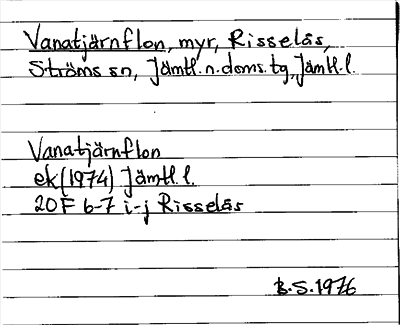 Vanatjärnflon, myr, Risselås,
Ströms sn, Jämtl.n.doms.tg, Jämtl.l.
Vanatjärnflon
ek(1974) Jämtl.l.
20F 6-7 i-j Risselås
B.S.1976